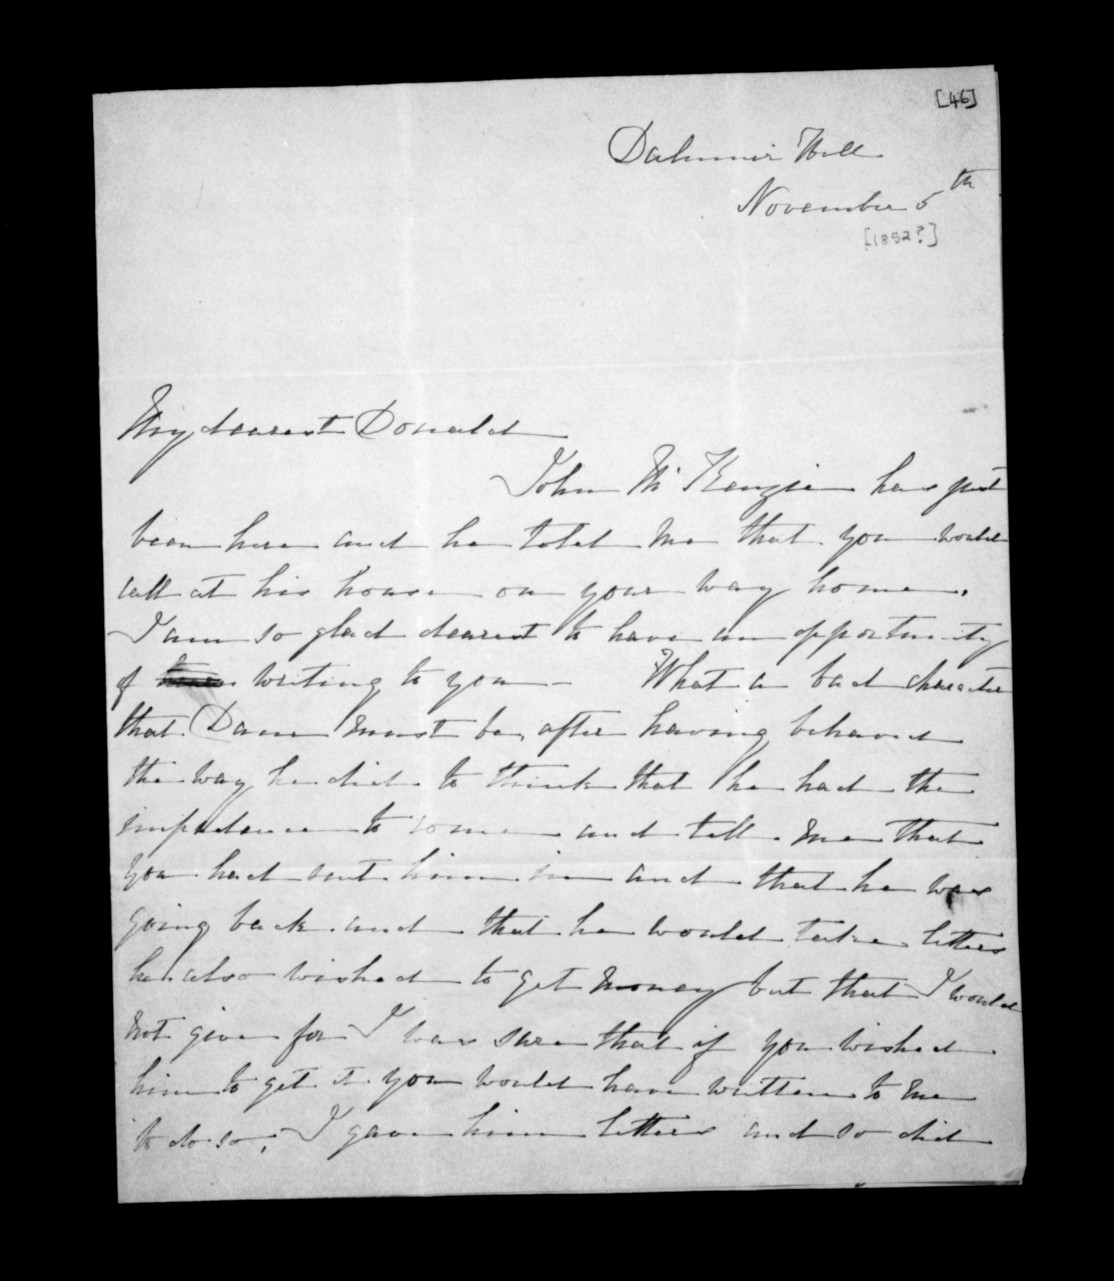 [46]
Dalmuir Hill
November 5th
[1852?]
My dearest Donald
John McKenzie has just
been here and he told me that you would
call at his house on your way home.
I am so glad dearest to have an opportunity
of writing to you - What a bad character
that Dan must be, after having behaved
the way he did to think that he had the
impudence to come and tell me that
you had sent him in and that he was
going back and that he would take letters
he also wished to get money but that I would
not give for I was sure that if you wished
him to get it you would have written to me
to do so; I gave him letters and so did